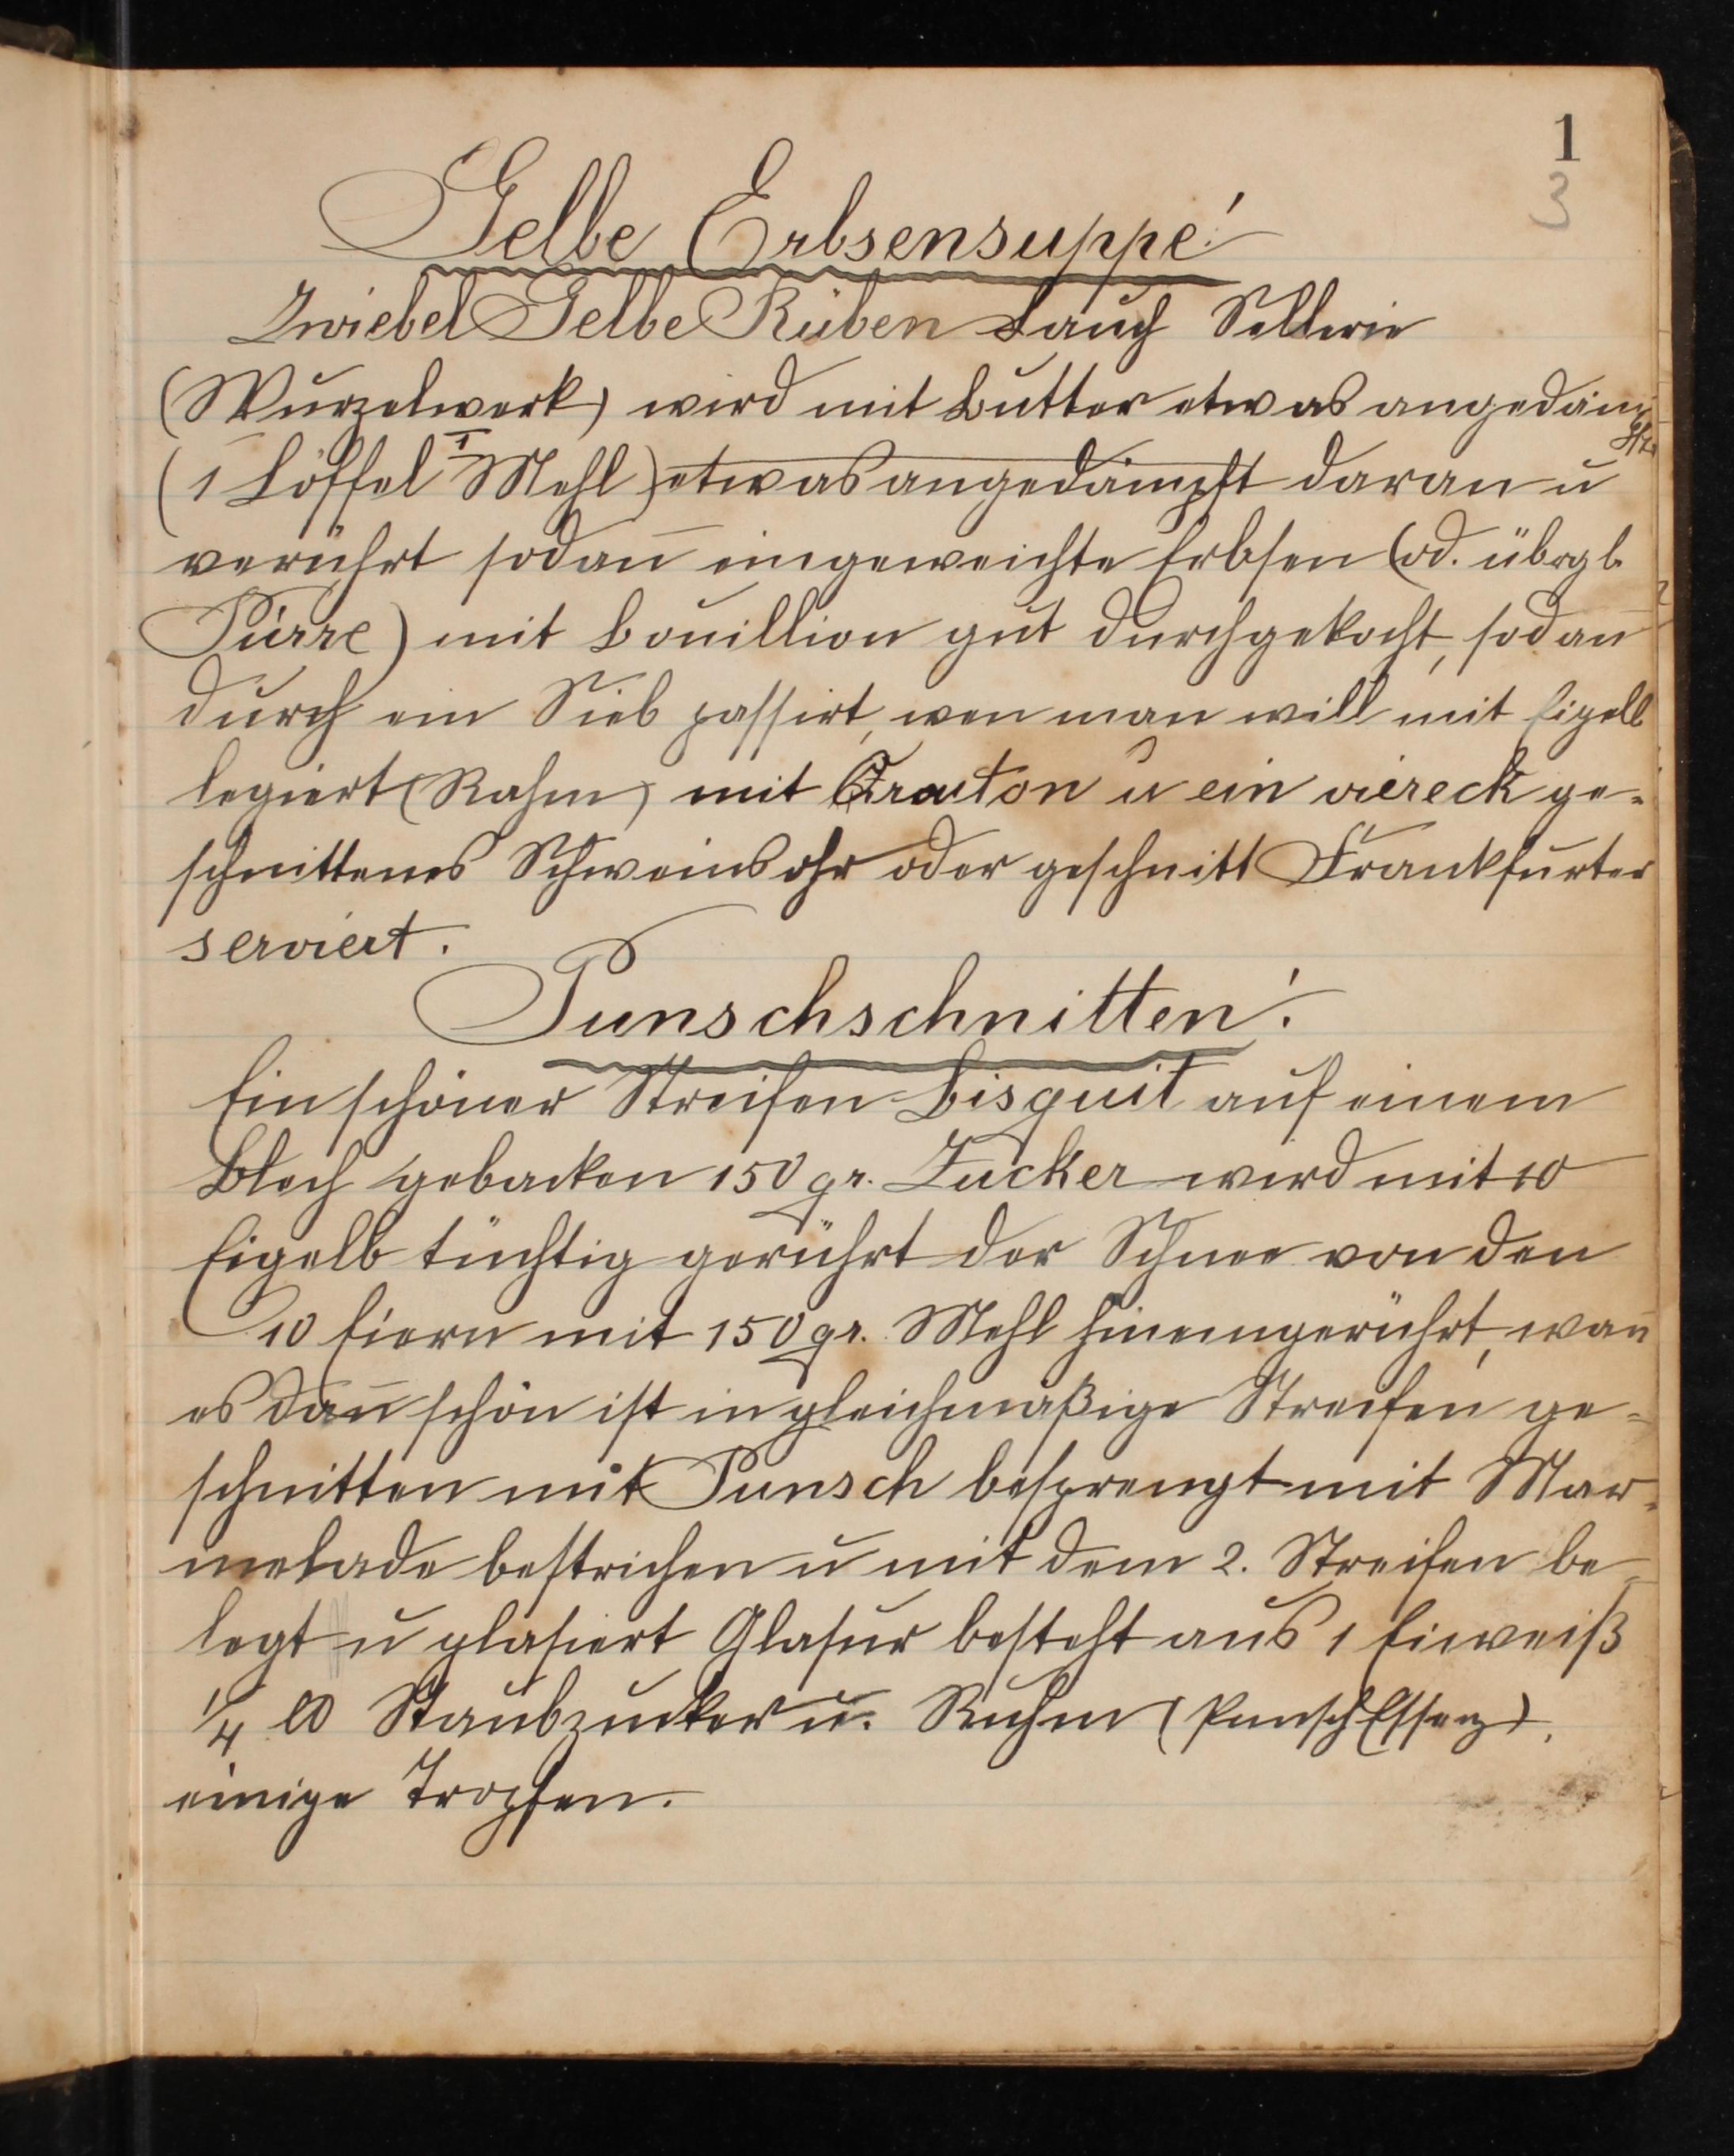 1
3
Gelbe Erbsensuppe!
Zwiebel Gelbe Rüben Lauch Sellerie
(Wurzelwerk) wird mit Butter etwas angedämpft
(1 Löffel I Mehl) etwas angedämpft daran u
verrührt sodan̄ eingeweichte Erbsen (od. übrgb.
Pürre) mit Bouillion gut durchgekocht, sodan̄
durch ein Sieb passirt, wen man will mit Eigelb
legiert (Rahm) mit Crouton u ein viereck ge-
schnittenes Schweinsohr oder geschnitt Frankfurter
serviert.
Punschschnitten!
Ein schöner Streifen Bisquit auf einem
Blech gebacken 150 gr. Zucker wird mit 10
Eigelb tüchtig gerührt der Schnee von den
10 Eiern mit 150 gr. Mehl hineingerührt, wan̄
es dan̄ schön ist in gleichmäßige Streifen ge-
schnitten mit Punsch besprengt mit Mar-
melade bestrichen u mit dem 2. Streifen be-
legt u glasiert Glasur besteht aus 1 Eiweiß
1/4 ℔ Staubzucker u. Ruhm (Punsch Essenz).
einige Tropfen.